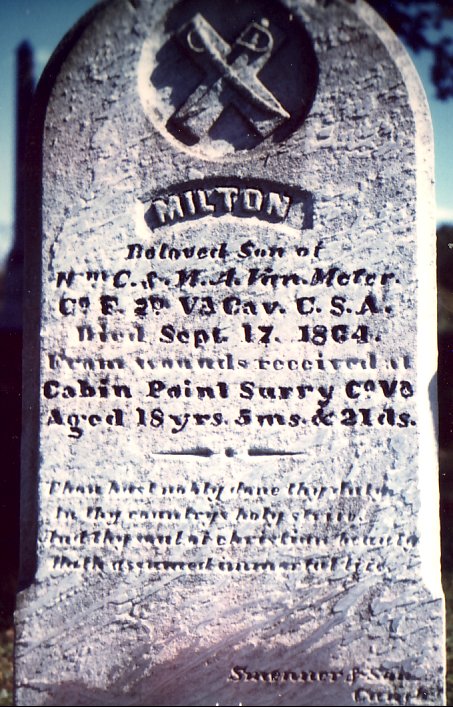 MILTON
Beloved Son of
Wm C. & H. A. Van Meter.
Co F. 7th Va Cav. C. S. A.
Died Sept. 17. 1864.
From wounds received at
Cabin Point Surry Co Va
Aged 18 yrs. 5 ms. & 21 ds.
Thou hast nobly done thy duty
In thy countrys holy
And thy christian beauty
Hath assumed immortal life.
& Son